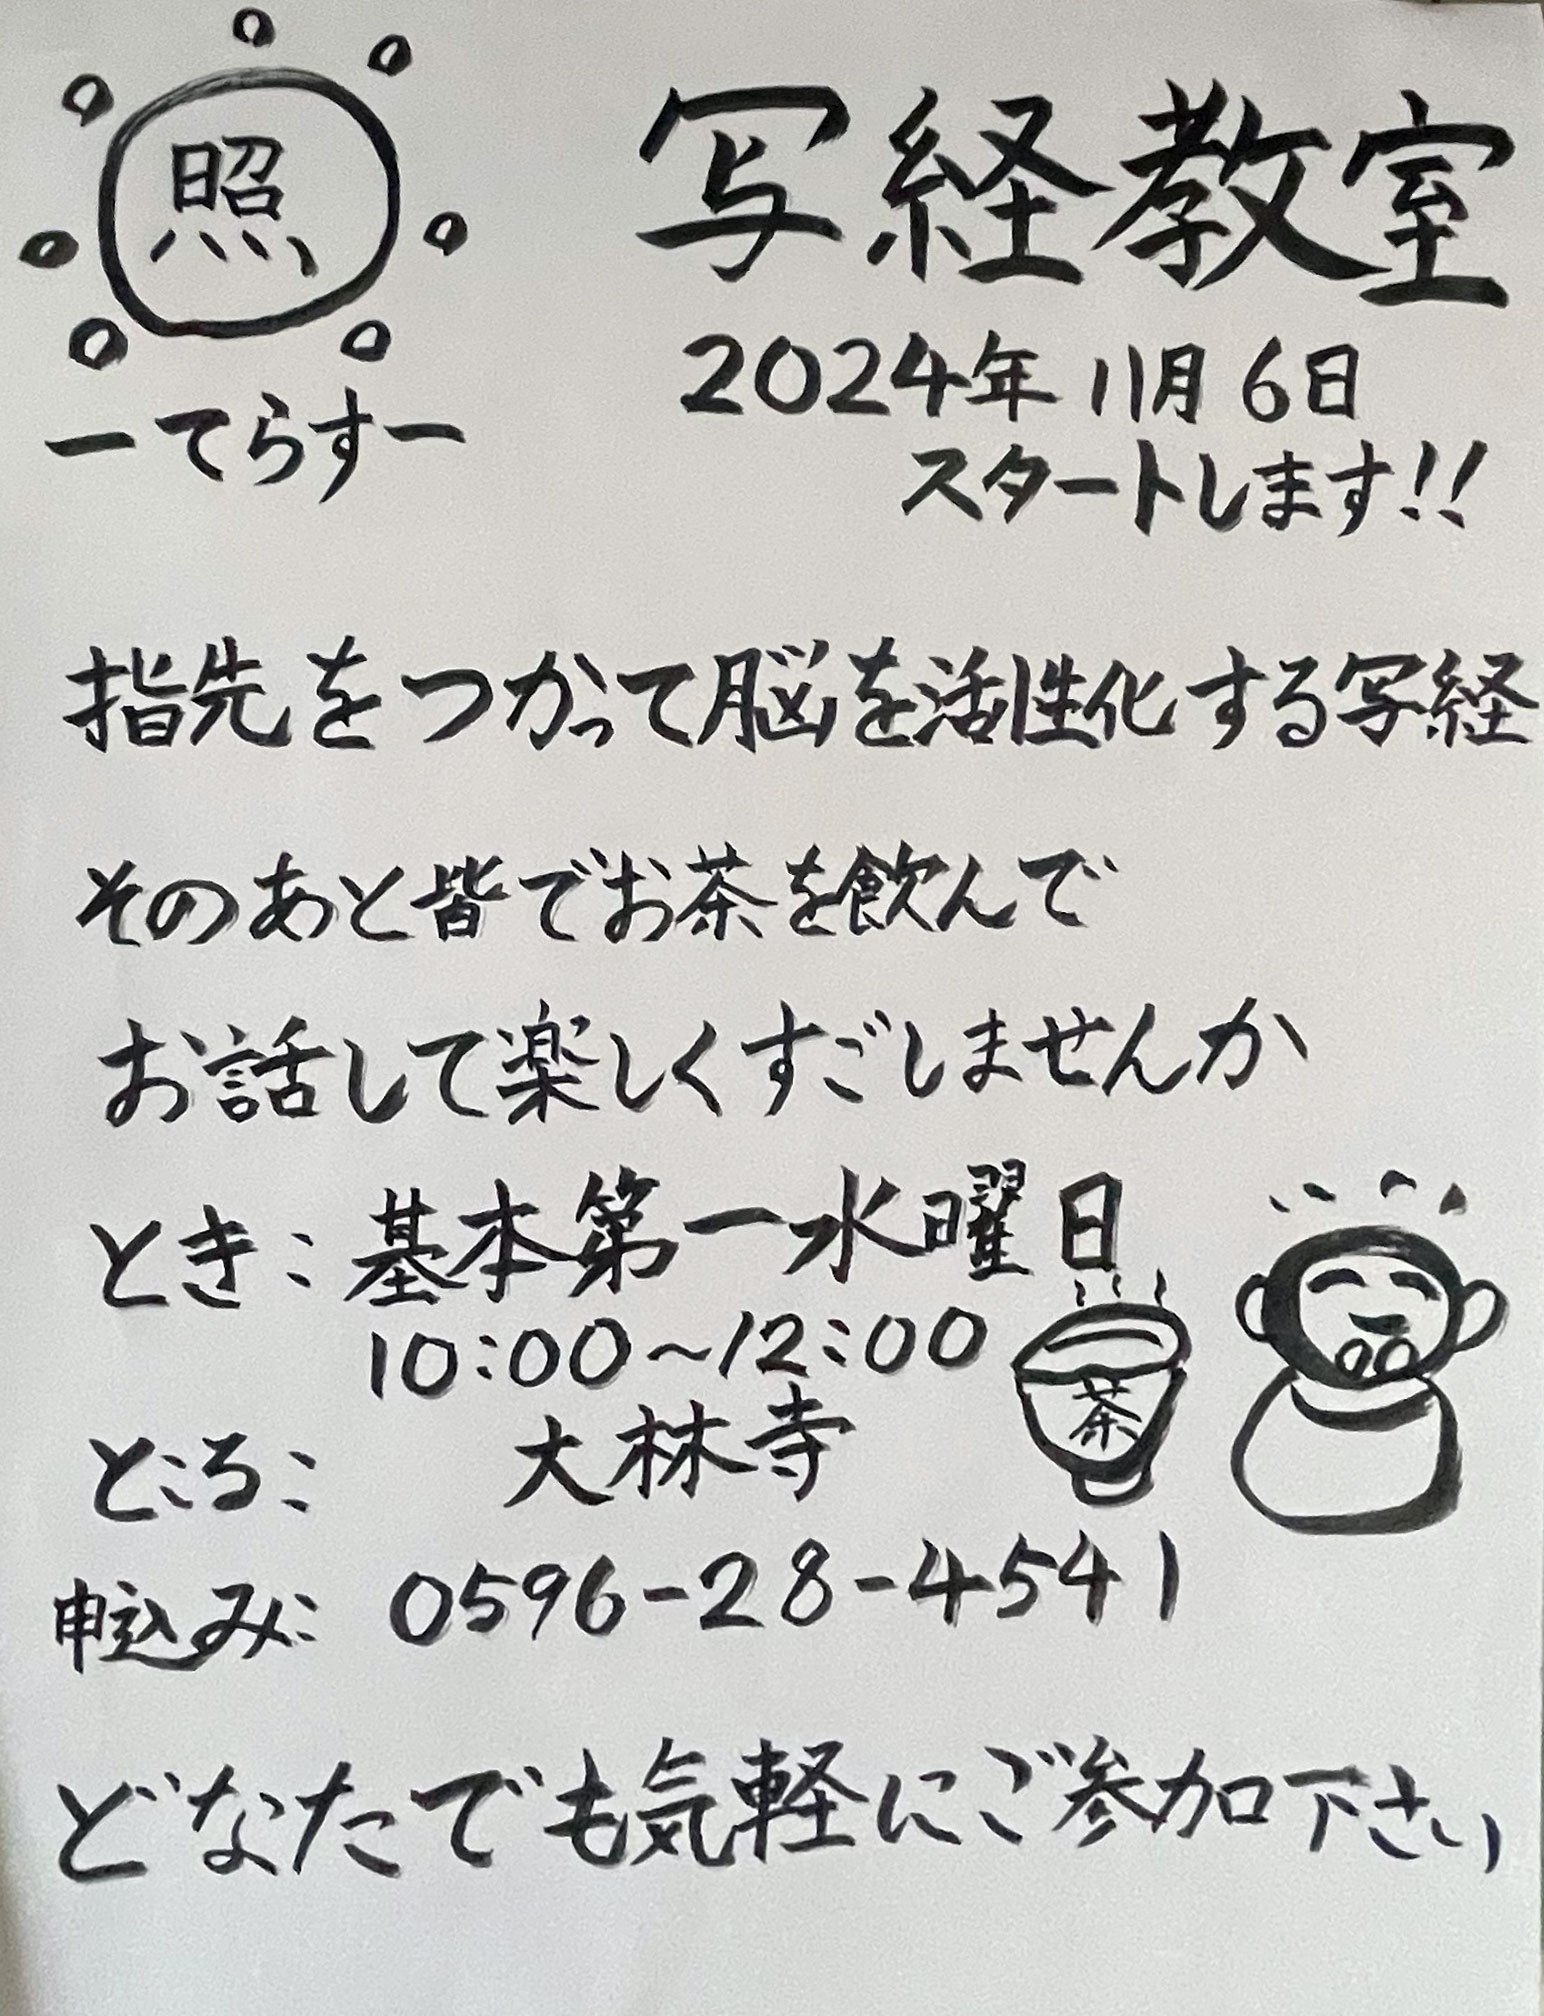 照
ーてらすー
写経教室
2024年11月6日
スタートします!!
指先をつかって脳を活性化する写経
そのあと皆でお茶を飲んで
お話して楽しくすごしませんか
とき:基本第一水曜日
10:00~12:00
ところ: 大林寺
茶
申込み: 0596-28-4541
どなたでも気軽にご参加下さい